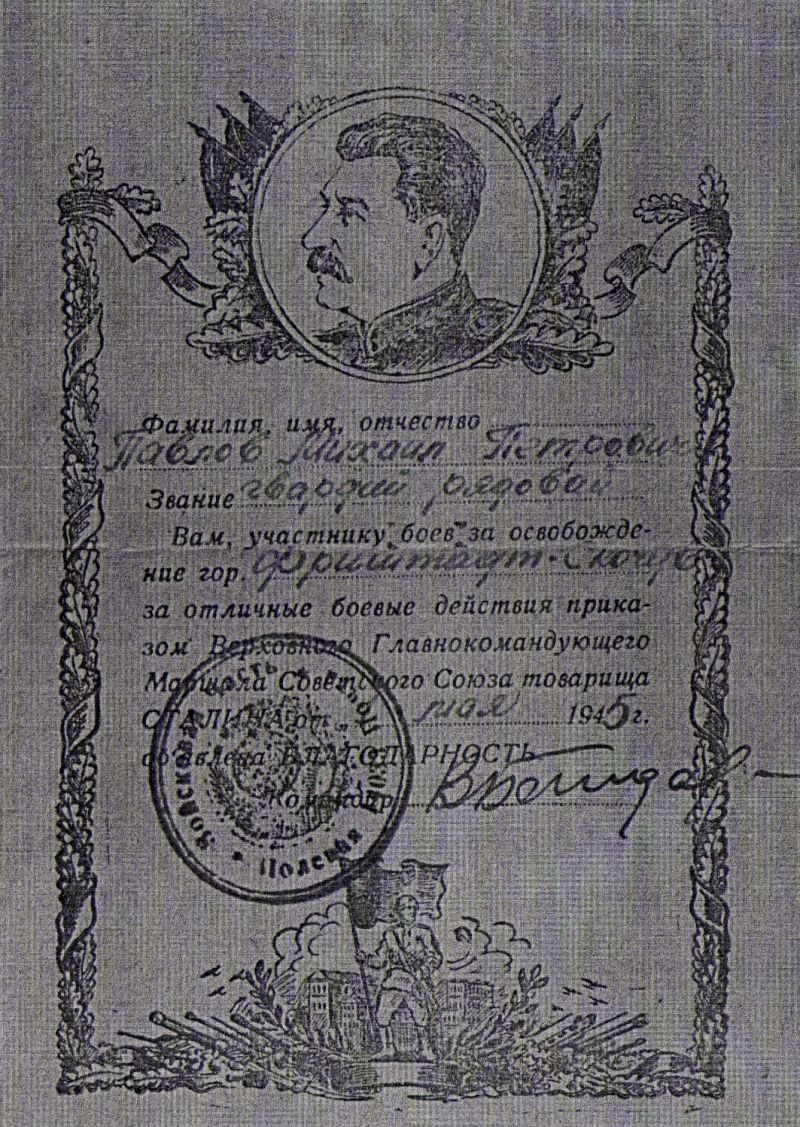 Фамилия, имя, отчество
Павлов Михаил Петрович
Звание гвардий рядовой
Вам, участнику боев за освобожде-
ние гор. Фриштадт-Скочув
за отличные боевые действия прика-
зом Верховного Главнокомандующего
Маршала Советского Союза товарища
СТАЛИНА от „ мая 1945 г.
объявлена БЛАГОДАРНОСТЬ
Командир
Войсковая часть Полевая Почта